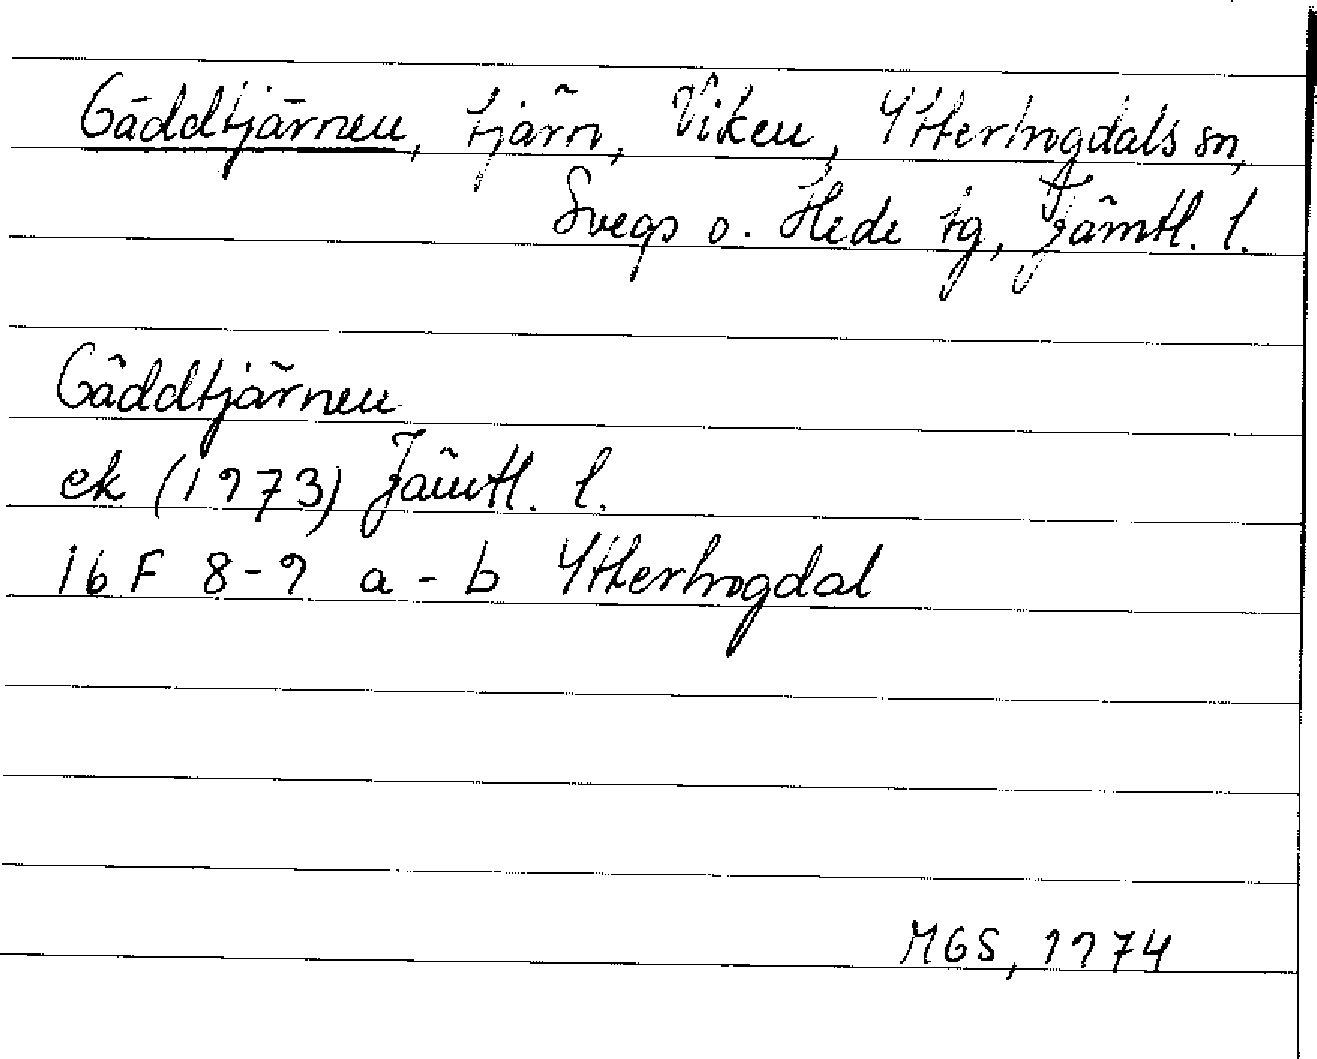 Gäddtjärnen, tjärn, Viken, Ytterhogdals sn,
Svegs o. Hede tg, Jämtl. l.
Gäddtjärnen
ek (1973) Jämtl. l.
16 F 8-9 a-b Ytterhogdal
MGS, 1974